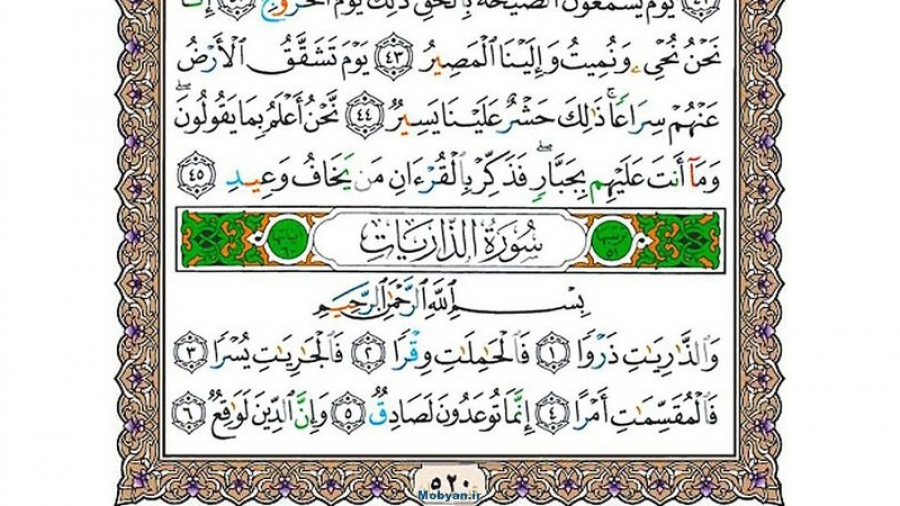 يَوْمَ يَسْمَعُونَ الصَّيْحَةَ بِالْحَقِّ ذَٰلِكَ يَوْمُ الْخُرُوجِ ﴿٤٢﴾ إِنَّا
نَحْنُ نُحْيِۦ وَنُمِيتُ وَإِلَيْنَا الْمَصِيرُ ﴿٤٣﴾ يَوْمَ تَشَقَّقُ الْأَرْضُ
عَنْهُمْ سِرَاعًا ۚ ذَٰلِكَ حَشْرٌ عَلَيْنَا يَسِيرٌ ﴿٤٤﴾ نَّحْنُ أَعْلَمُ بِمَا يَقُولُونَ ۖ
وَمَآ أَنتَ عَلَيْهِم بِجَبَّارٍ ۖ فَذَكِّرْ بِالْقُرْءَانِ مَن يَخَافُ وَعِيدِ ﴿٤٥﴾
سُورَةُ الذَّارِيَاتِ
بِسْمِ ٱللَّهِ ٱلرَّحْمَٰنِ ٱلرَّحِيمِ
وَالذَّارِيَاتِ ذَرْوًا ﴿١﴾ فَالْحَامِلَاتِ وِقْرًا ﴿٢﴾ فَالْجَارِيَاتِ يُسْرًا ﴿٣﴾
فَالْمُقَسِّمَاتِ أَمْرًا ﴿٤﴾ إِنَّمَا تُوعَدُونَ لَصَادِقٌ ﴿٥﴾ وَإِنَّ الدِّينَ لَوَاقِعٌ ﴿٦﴾
٥٢٠
Mobyan.ir